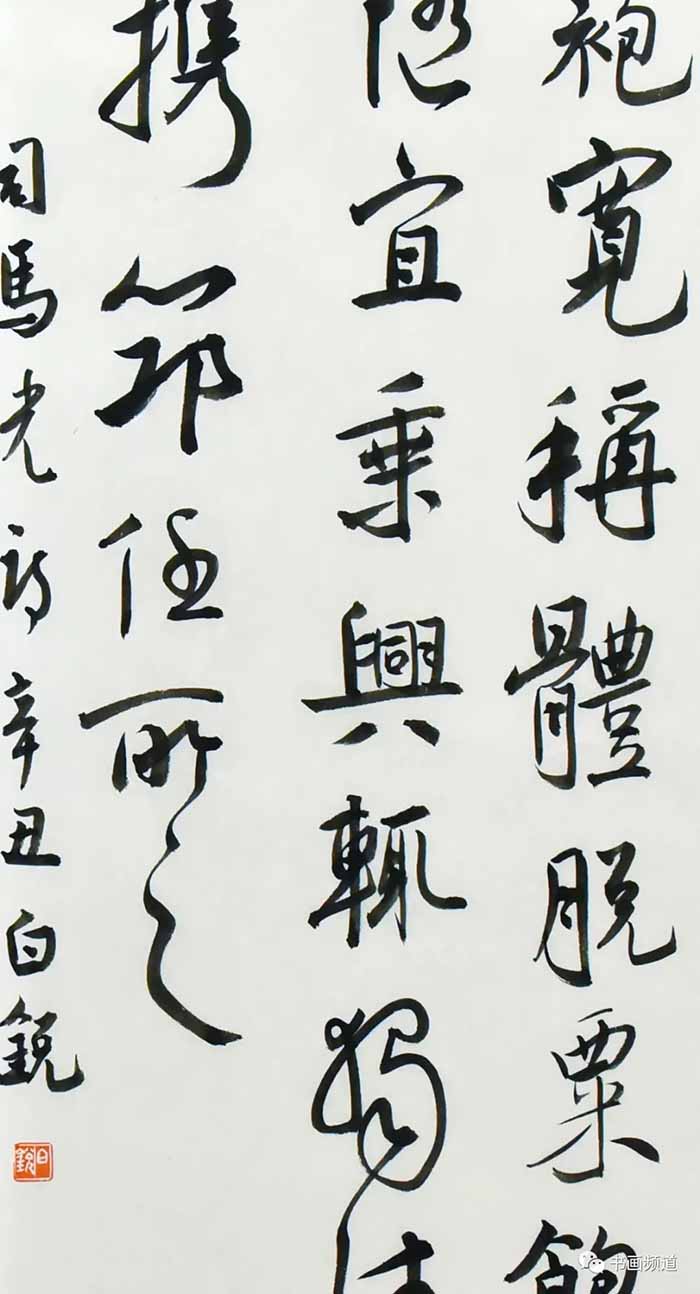 袍寬稱體脱粟飽
随宜乘興輒獨往
携筇任所之
司馬光詩辛丑白鋭
白鋭
书画频道